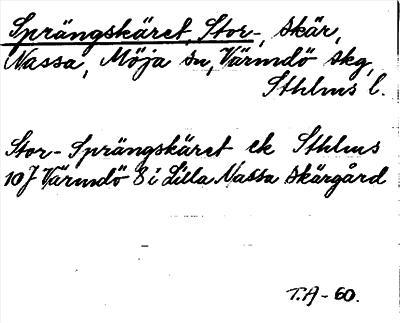 Sprängskäret, Stor-, skär,
Nassa, Möja sn, Värmdö skg,
Sthlms l.
Stor-Sprängskäret ek Sthlms
10J Värmdö S i Lilla Nassa skärgård
T.A-60.